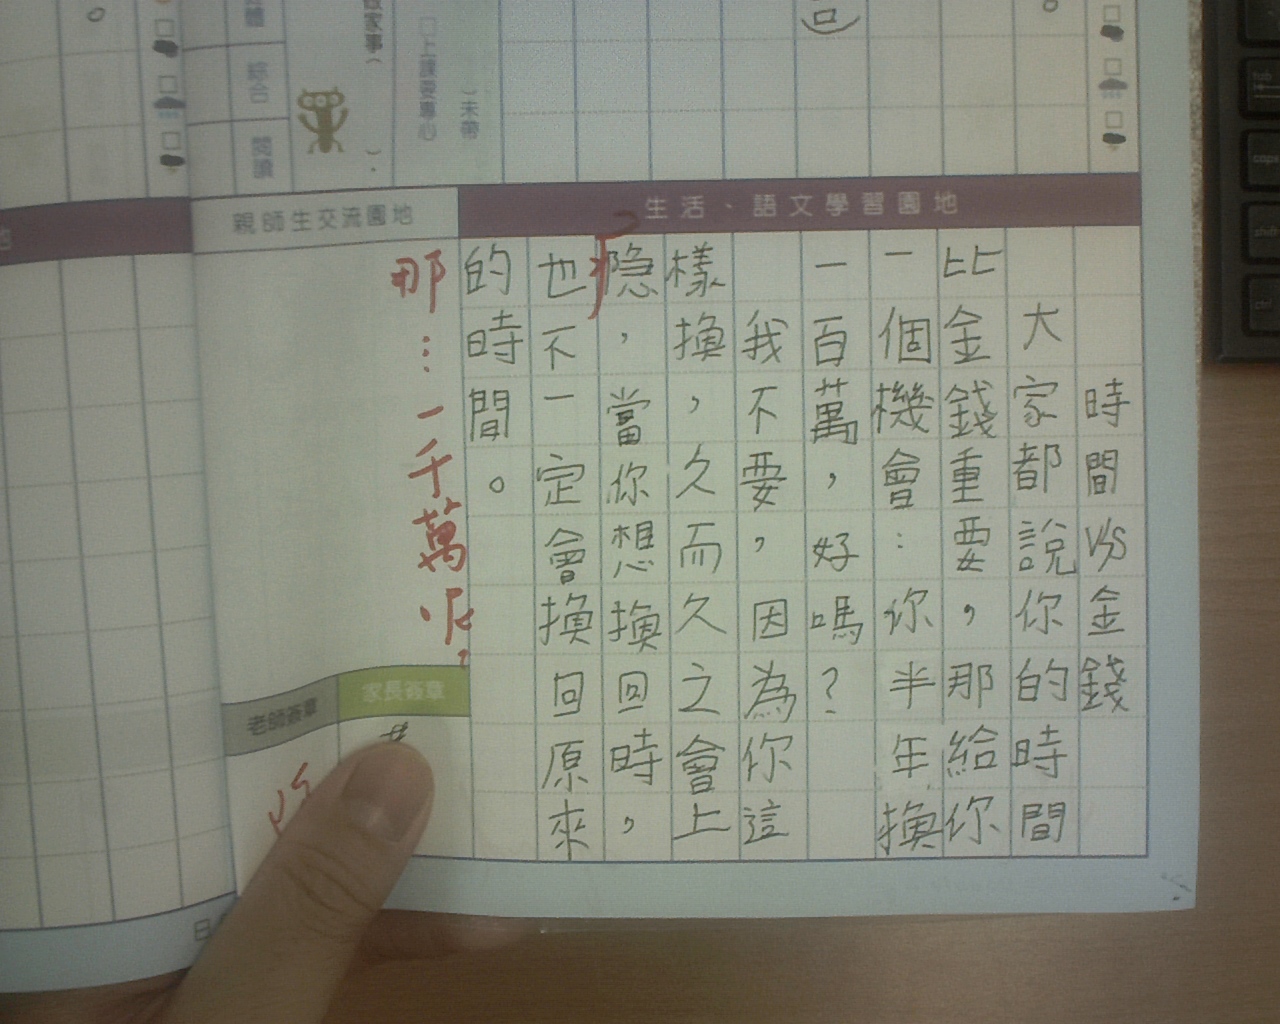 生活、語文學習園地
時間VS金錢
大家都說你的時間
比金錢重要，那給你
一個機會：你半年換
一百萬，好嗎？
我不要，因為你這
樣換，久而久之會上
隱，當你想換回時，
也不一定會換回原來
的時間。
親師生交流園地
那…一千萬呢?
家長簽章
老師簽章
未帶
□上課要專心
綜合
閱讀